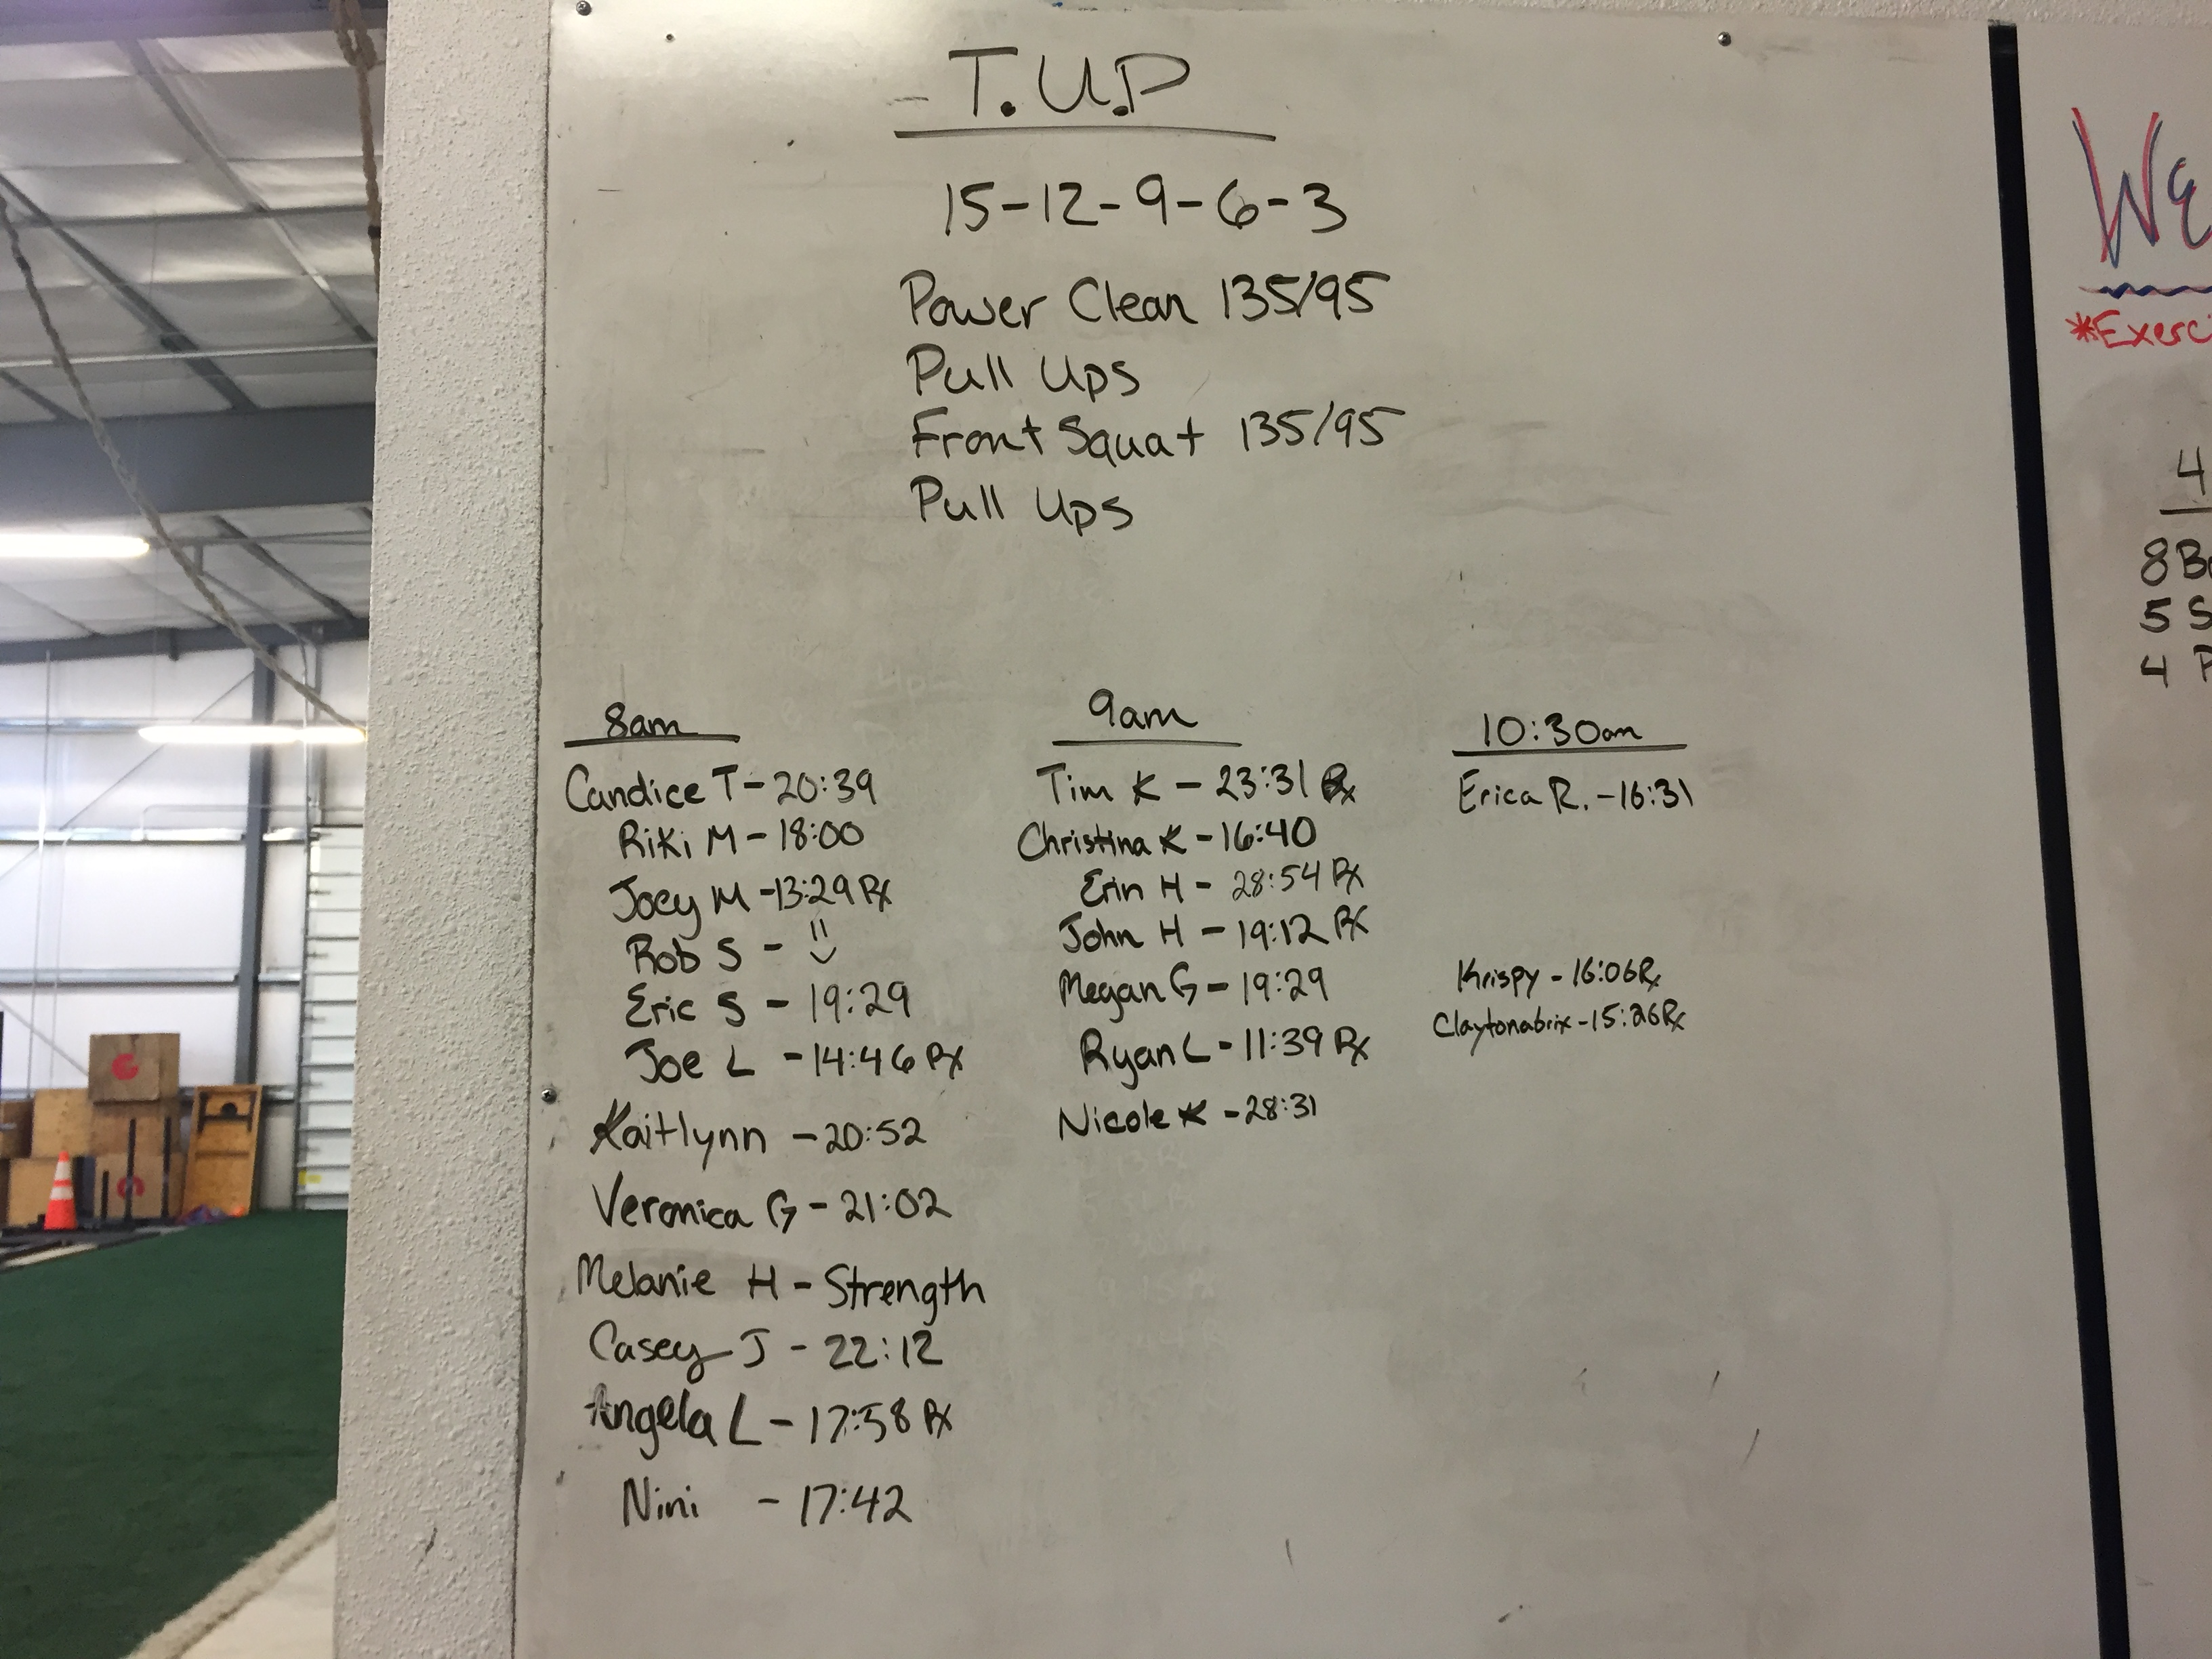 T.U.P
15-12-9-6-3
Power Clean 135/95
Pull Ups
Front Squat 135/95
Pull Ups
8am
Candice T - 20:39
Riki M - 18:00
Joey M - 13:29 Rx
Rob S -
Eric S - 19:29
Joe L - 14:46 Rx
Kaitlynn - 20:52
Veronica G - 21:02
Melanie H - Strength
Casey J - 22:12
Angela L - 17:58 Rx
Nini - 17:42
9am
Tim K - 23:31 Rx
Christina K - 16:40
Erin H - 28:54 Rx
John H - 19:12 Rx
Megan G - 19:29
Ryan L - 11:39 Rx
Nicole K - 28:31
10:30am
Erica R. - 16:31
Krispy - 16:06 Rx
Claytonabrix - 15:26 Rx
We
*Exerc
4
8 B
5 S
4 P